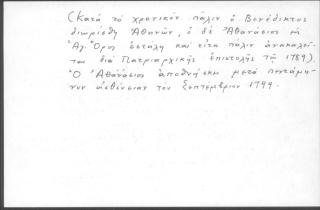 (Κατά τό χρονικόν πάλιν ὁ Βενέδικτος
διωρίσθη Ἀθηνῶν, ὁ δέ Ἀθανάσιος εἰς
Ἅγ. Ὄρος ἐστάλη καί εἶτα πάλιν ἀνακαλεῖ-
ται διά Πατριαρχικῆς ἐπιστολῆς τῷ 1789).
Ὁ Ἀθανάσιος ἀποθνήσκει μετά πεντάμη-
νον ἀσθένειαν τόν Σεπτέμβριον 1799.